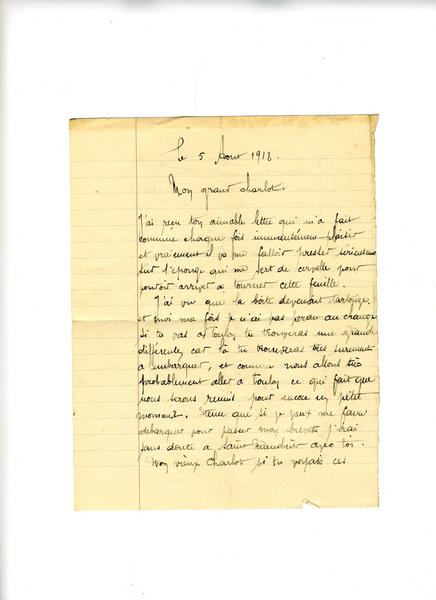 le 5 Aout 1918.
Mon grand charlot.
J'ai recu ton aimable lettre qui m'a fait
comme chaque fois immensément plaisir
et vraiement il va me falloir presser sérieusement
sur l'éponge qui me sert de cervelle pour
pouvoir arriver a tourner cette feuille.
J'ai vu que la boite devenait
et moi ma fois je n'ai pas au change
si tu vas a toulon tu trouveras une grande
difference car là tu trouveras très surement
a embarquer, et comme nous allons très
probablement aller a toulon ce qui fait que
nous serons reunis pour encore un petit
moment. Meme que si je peux me faire
débarquer pour passer mon brevet j'irai
sans doute a Saint Mandrier avec toi.
Mon vieux Charlot si tu voyais ces